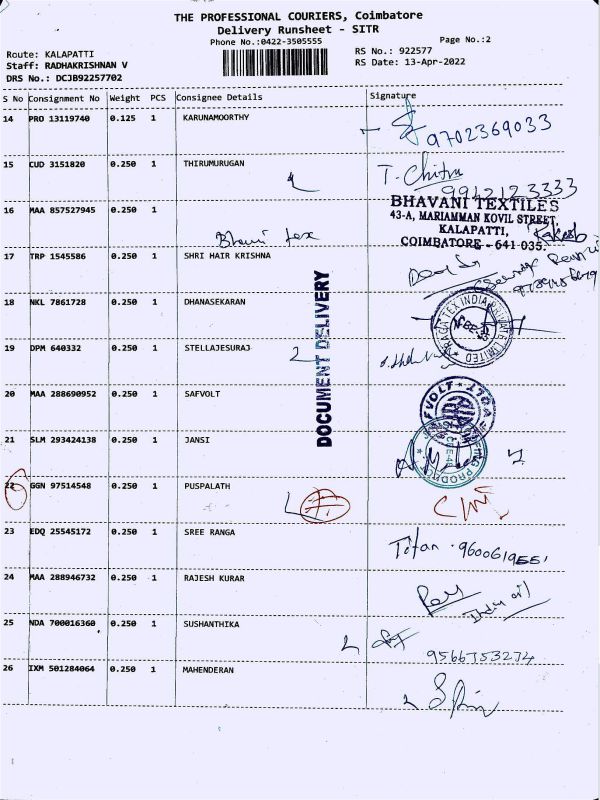 THE PROFESSIONAL COURIERS, Coimbatore
Delivery Runsheet - SITR
Phone No.:0422-3505555
Page No.:2
Route: KALAPATTI
RS No.: 922577
Staff: RADHAKRISHNAN V
RS Date: 13-Apr-2022
DRS No.: DCJB92257702
S No Consignment No Weight PCS Consignee Details Signature
14 PRO 13119740 0.125 1 KARUNAMOORTHY
9702369033
15 CUD 3151820 0.250 1 THIRUMURUGAN T. Chitra
9942123333
16 MAA 857527945 0.250 1 Bhavani tex
BHAVANI TEXTILES
43-A, MARIAMMAN KOVIL STREET,
KALAPATTI,
COIMBATORE - 641 035.
Rakesh
17 TRP 1545586 0.250 1 SHRI HAIR KRISHNA
18 NKL 7861728 0.250 1 DHANASEKARAN
RAGA TEX INDIA PRIVATE LIMITED
19 DPM 640332 0.250 1 STELLAJESURAJ 2
DOCUMENT DELIVERY
20 MAA 288690952 0.250 1 SAFVOLT
SAFVOLT
21 SLM 293424138 0.250 1 JANSI
22 GGN 97514548 0.250 1 PUSPALATH
23 EDQ 25545172 0.250 1 SREE RANGA Titan. 9600619551
24 MAA 288946732 0.250 1 RAJESH KURAR
25 NDA 700016360 0.250 1 SUSHANTHIKA
9566753274
26 IXM 501284064 0.250 1 MAHENDERAN